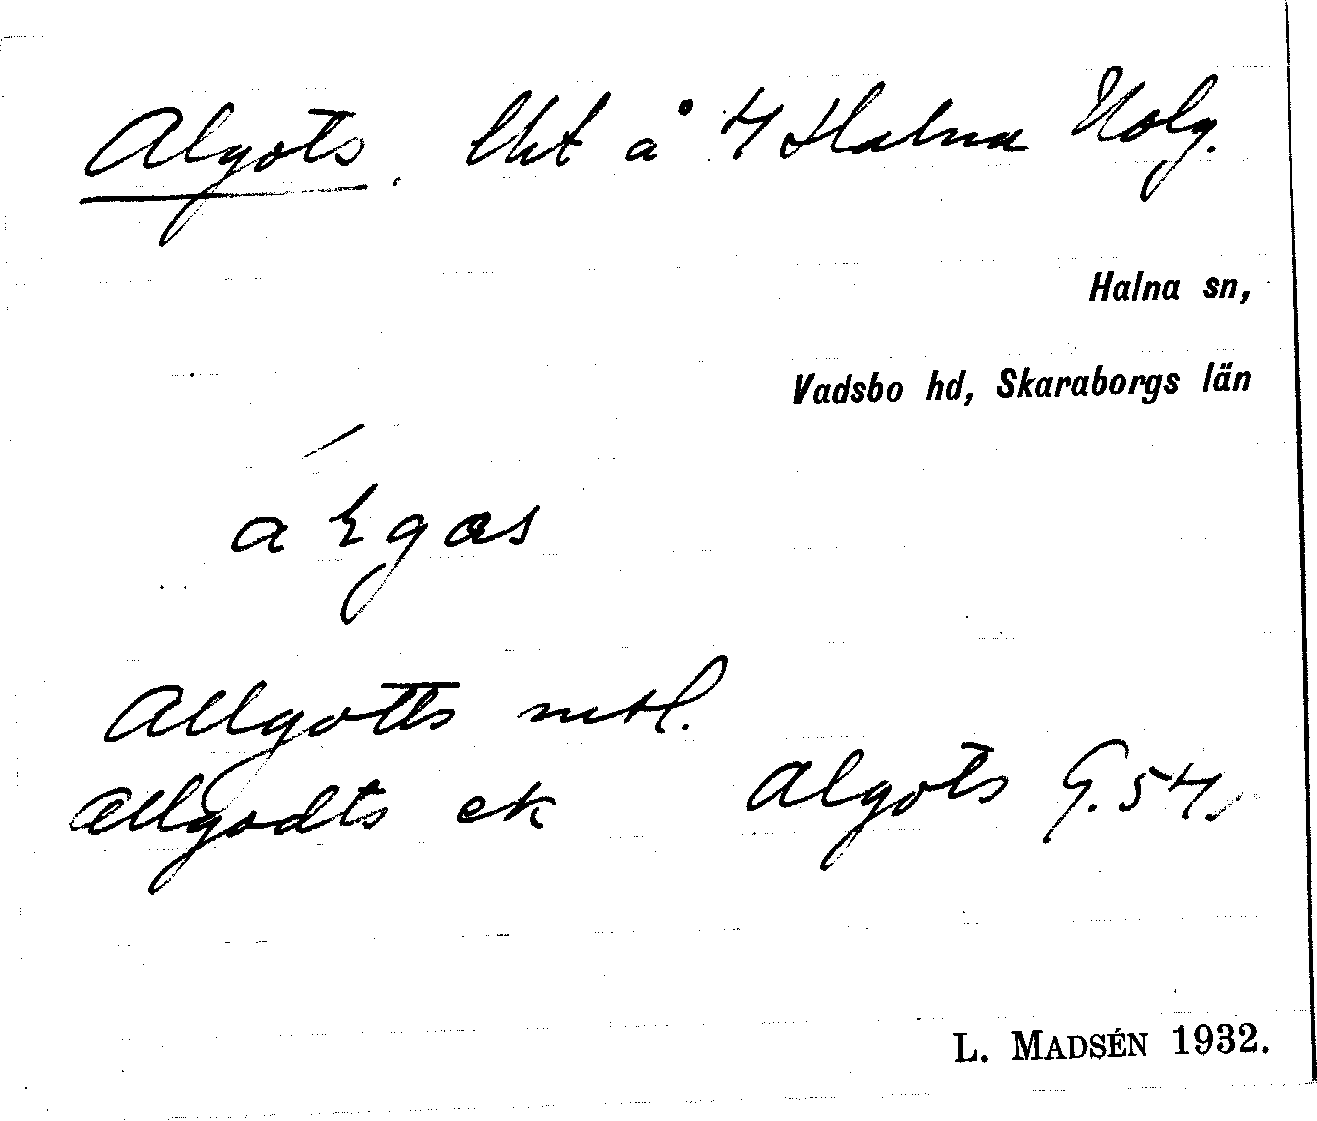 Algots. lht å 4 Halna Holg.
Halna sn,
Vadsbo hd, Skaraborgs län
Allgotts mtl.
Allgodts ek Algots G. 54.
L. MADSÉN 1932.